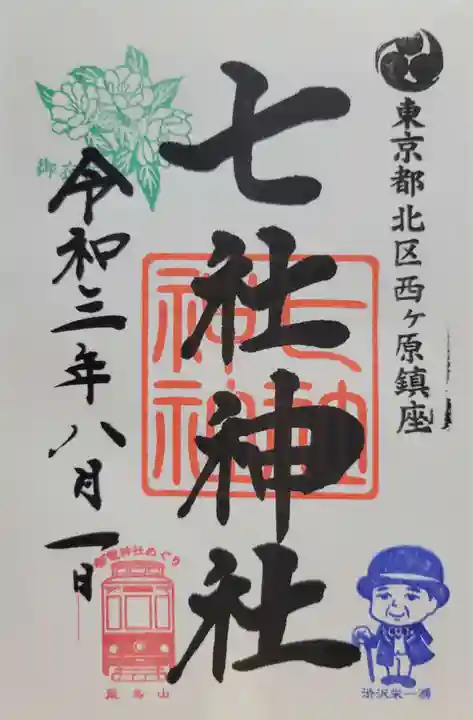 東京都北区西ヶ原鎮座
七社神社
七社神社
令和三年八月一日
都電神社めぐり
飛鳥山
渋沢栄一翁